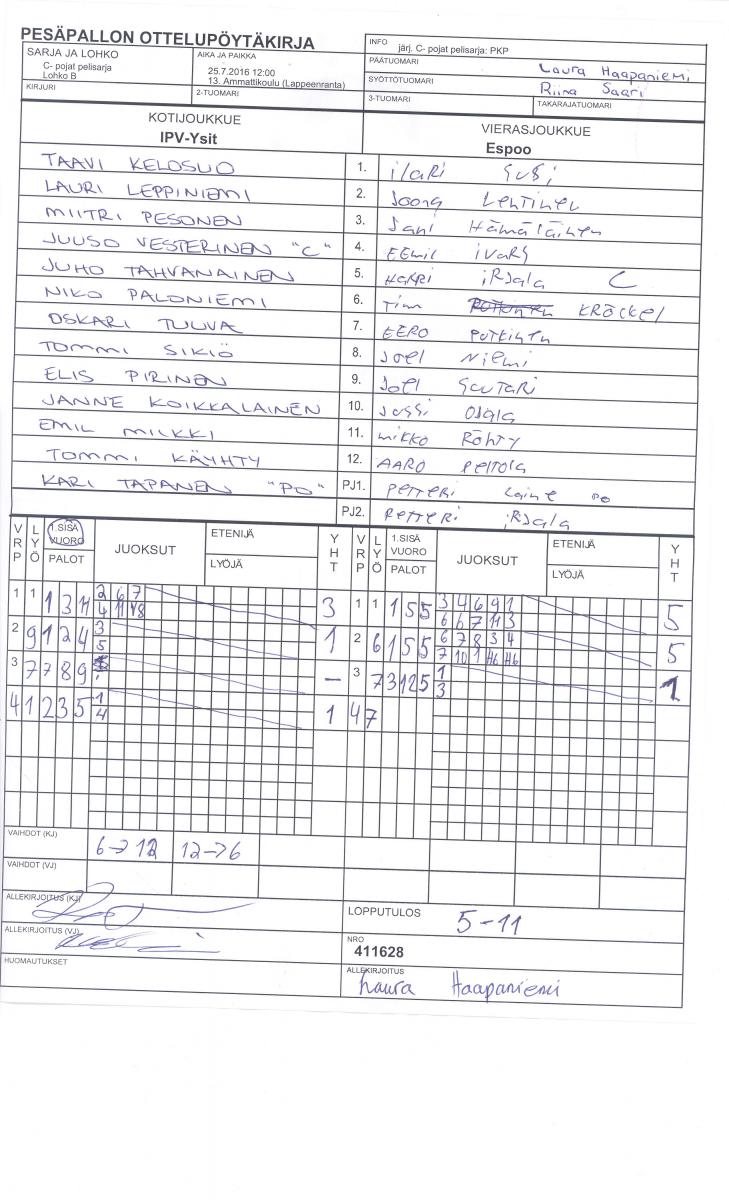 PESÄPALLON OTTELUPÖYTÄKIRJA
INFO järj. C- pojat pelisarja: PKP
SARJA JA LOHKO
C- pojat pelisarja
Lohko B
AIKA JA PAIKKA
25.7.2016 12:00
13. Ammattikoulu (Lappeenranta)
PÄÄTUOMARI Laura Haapaniemi
SYÖTTÖTUOMARI Riina Saari
KIRJURI
2-TUOMARI
3-TUOMARI
TAKARAJATUOMARI
KOTIJOUKKUE
IPV-Ysit
VIERASJOUKKUE
Espoo
TAAVI KELOSUO 1. ilari Susi
LAURI LEPPINIEMI 2. Joona Lehtinen
MIITRI PESONEN 3. Sani Hämäläinen
JUUSO VESTERINEN "C" 4. EEmil ivars
JUHO TAHVANAINEN 5. Harri iRJala C
NIKO PALONIEMI 6. Timi KRÖCKEl
OSKARI TUUVA 7. EERO POTKINEN
TOMMI SIKIÖ 8. Joel Niemi
ELIS PIRINEN 9. Joel Soutari
JANNE KOIKKALAINEN 10. Jussi OJALA
EMIL MILKKI 11. mikko RÖHTY
TOMMI KÄYHTY 12. AARO Peltola
KARI TAPANEN "PO" PJ1. PETTERI Laine PO
PJ2. PETTERI iRJala
VRP LYÖ 1.SISÄ VUORO PALOT JUOKSUT ETENIJÄ LYÖJÄ YHT VRP LYÖ 1.SISÄ VUORO PALOT JUOKSUT ETENIJÄ LYÖJÄ YHT
1 1 1 3 11 2 6 7 3 1 1 1 5 5 3 4 6 9 1 5
4 11 48 6 6 7 11 3
2 9 1 2 4 3 1 2 6 1 5 5 6 7 8 3 4 5
5 7 10 1 46 46
3 7 7 8 9 – 3 7 3 12 5 1 1
3
4 1 2 3 5 1 1 4 7
4
VAIHDOT (KJ) 6→12 12→6
VAIHDOT (VJ)
ALLEKIRJOITUS (KJ)
LOPPUTULOS 5-11
ALLEKIRJOITUS (VJ)
NRO
411628
HUOMAUTUKSET
ALLEKIRJOITUS
Laura Haapaniemi